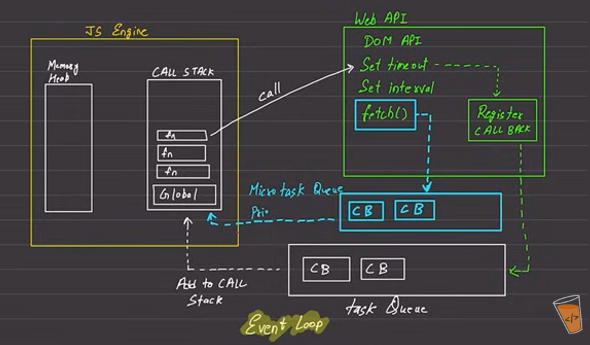 JS Engine
Memory
Heap
CALL STACK
fn
fn
fn
Global
call
Web API
DOM API
Set timeout
Set interval
fetch()
Register
CALL BACK
Microtask Queue
Prio
CB
CB
CB
CB
Add to CALL
Stack
task Queue
Event Loop
</>